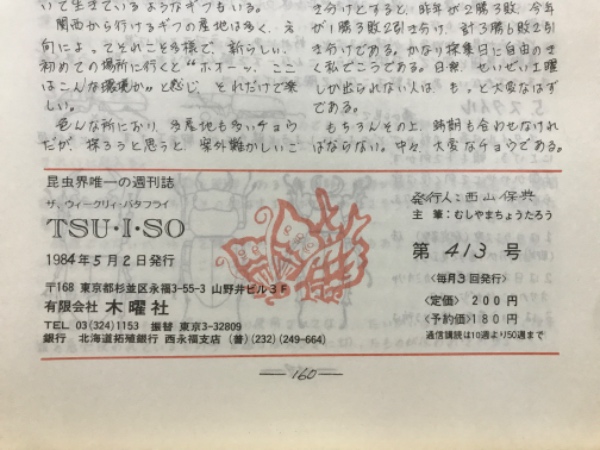 いて生きているようなギフもいる。
関西から行けるギフの産地は多く、方
向によってそれこそ多様で、新しい、
初めての場所に行くと“ホオーッ、ここ
はこんな環境か”と感じ、それだけで楽
しい。
色んな所におり、多産地も多いチョウ
だが、採ろうと思うと、案外難かしいこ
き分けとすると、昨年が2勝3敗、今年
が1勝3敗2引き分け、計3勝6敗2引
き分けである。かなり採集日に自由のき
く私でこうである。日祭、せいぜい土曜
しか出られない人は、もっと大変なはず
である。
もちろんその上、時期も合わせなけれ
ばならない。中々、大変なチョウである。
昆虫界唯一の週刊誌
ザ・ウィークリィ・バタフライ
TSU・I・SO
1984年5月2日発行
〒168 東京都杉並区永福3-55-3 山野井ビル3F
有限会社 木曜社
TEL 03(324)1153 振替 東京3-32809
銀行 北海道拓殖銀行 西永福支店 (普)(232)(249-664)
発行人：西山保典
主筆：むしやまちょうたろう
第 413 号
〈毎月3回発行〉
〈定価〉 200円
〈予約価〉180円
通信購読は10週より50週まで
—160—